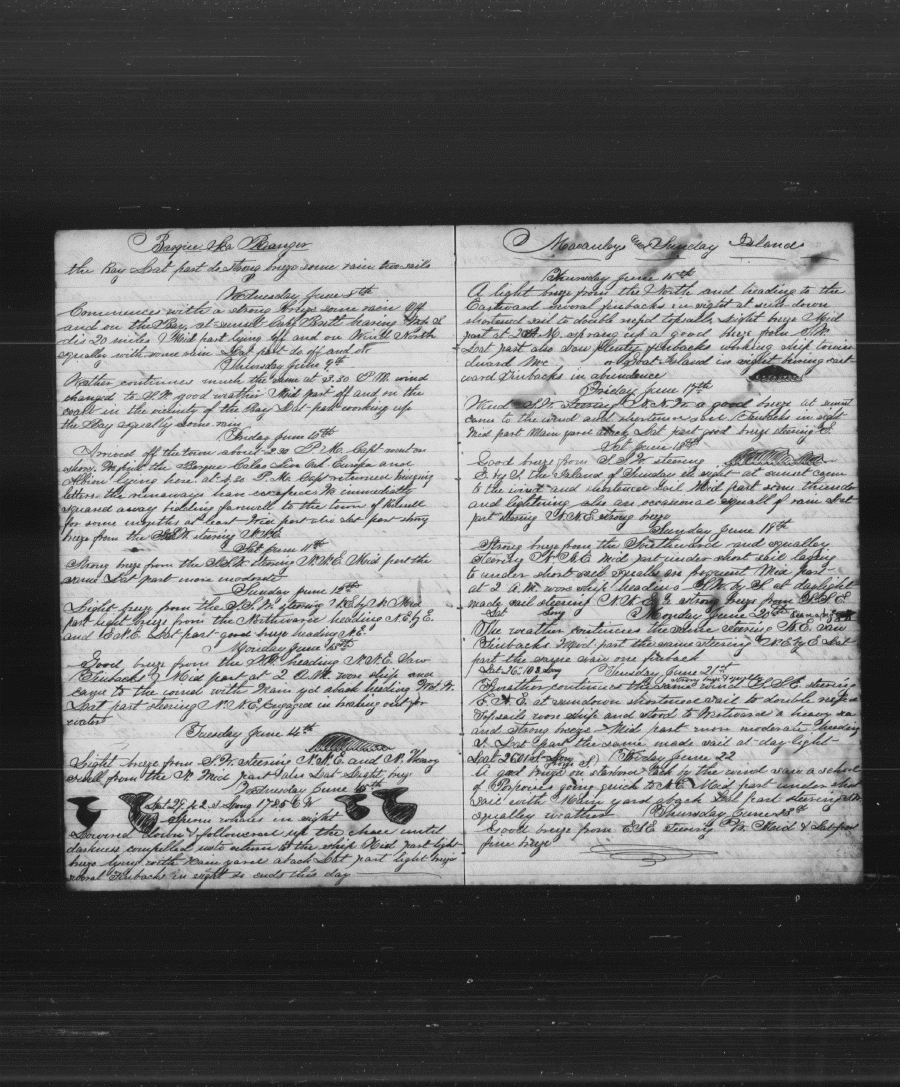 Barque Sea Ranger
the Bay Lat part do strong breze some rain two sails
Wednesday June 8th
Commences with a strong breze some rain off
and on the Bay, at sunset Cape bearing
dis 20 miles Mid part lying off and on Wind North
squaley with some rain Lat part do off and on
Thursday June 9th
Wather continues much the same at 3.30 P M wind
changed to S.W. good weather Mid part off and on the
coast in the vicinity of the Bay Lat part working up
the Bay squaly some rain
Friday June 10th
Arived off the town about 2.30 P.M. Capt went on
shore. the Barque Calao Sea Europa and
Albion lying here at 4.30 P.M. Capt returned bringing
letters the runaways have We immediatly
squared away bidding farewell to the town of
for some months at least Mid part do Lat part strong
breze from the S.W. steering N.N.E.
Sat June 11th
Strong breze from the steering N.N.E. Mid part the
same Lat part more moderate
Sunday June 12th
Light breze from the S.S.W. steering N.E. by N. Mid
part light breze from the Northward heading N.E. by E.
and E.N.E. Lat part good breze heading N.E.
Monday June 13th
Good breze from the heading N.N.E. Saw
Finbacks Mid part at 2 A.M. wore ship and
came to the wind with Main yd aback heading
Lat part steering N.N.E. Engaged in breaking out for
water
Tuesday June 14th
Light breze from S.W. Steering N.N.E. and N. Heavy
swell from the Mid part Lat Light brez
Wednesday June 15th
Lat 29 Long 178
Sperm whales in sight
Lowered down & followed up the chase until
darkness compelled us to return to the ship Mid part light
breze lying with Main yard aback Lat part light brezes
several Finbacks in sight so ends this day
Macauleys and Sunday Islands
Thursday June 16th
A light breze from the North and heading to the
Eastward Several Finbacks in sight at sun down
shortened sail to double reefed topsails Light breze Mid
part at A.M. sprang up a good breze from S.W.
Lat part also Saw plenty Finbacks working ship
dward Mc or Goat Island in sight bearing east
ward Finbacks in abundence
Friday June 17th
Wind S.W. Steering N.N.W. a good breze at sunset
came to the wind and shortened sail Finbacks in sight
Mid part Main yard aback Lat part good breze steering E.
Sat June 18th
Good breze from S.S.W. steering
E. by S. the Island of Sunday in sight at sunset came
to the wind and shortened sail Mid part some thunder
and lightning also an occasional squall of rain Lat
part steering N.N.E. strong breze
Sunday June 19th
Strong breze from the Southward and squalley
Steering N.N.E. Mid part under short sail laying
to under short sail squalls frequent Mid part
at 2 A.M. wore ship heading S.W. by S. at daylight
made sail steering strong breze from S.S.E.
Lat Long Monday June 20th
The weather continues the same steering N.E. Saw
Finbacks Mid part the same steering N.E. by E. Lat
part the same saw one finback
Lat Long Tuesday June 21st
strong breze & squaley
Weather continues the same wind S.S.E. steering
E.N.E. at sundown shortened sail to double reefed
Topsails wore ship and stood to Westward a heavy sea
and strong breze Mid part more moderate heading
S. Lat part the same made sail at day light
Lat 26 01 st Long Friday June 22
A good breze on starbord tack by the wind saw a school
of Porposes going quick to N.E. Mid part under short
sail with Main yard aback Lat part steering
squalley weather Thursday June 23rd
Good breze from E.S.E. steering Mid & Lat part
fine breze